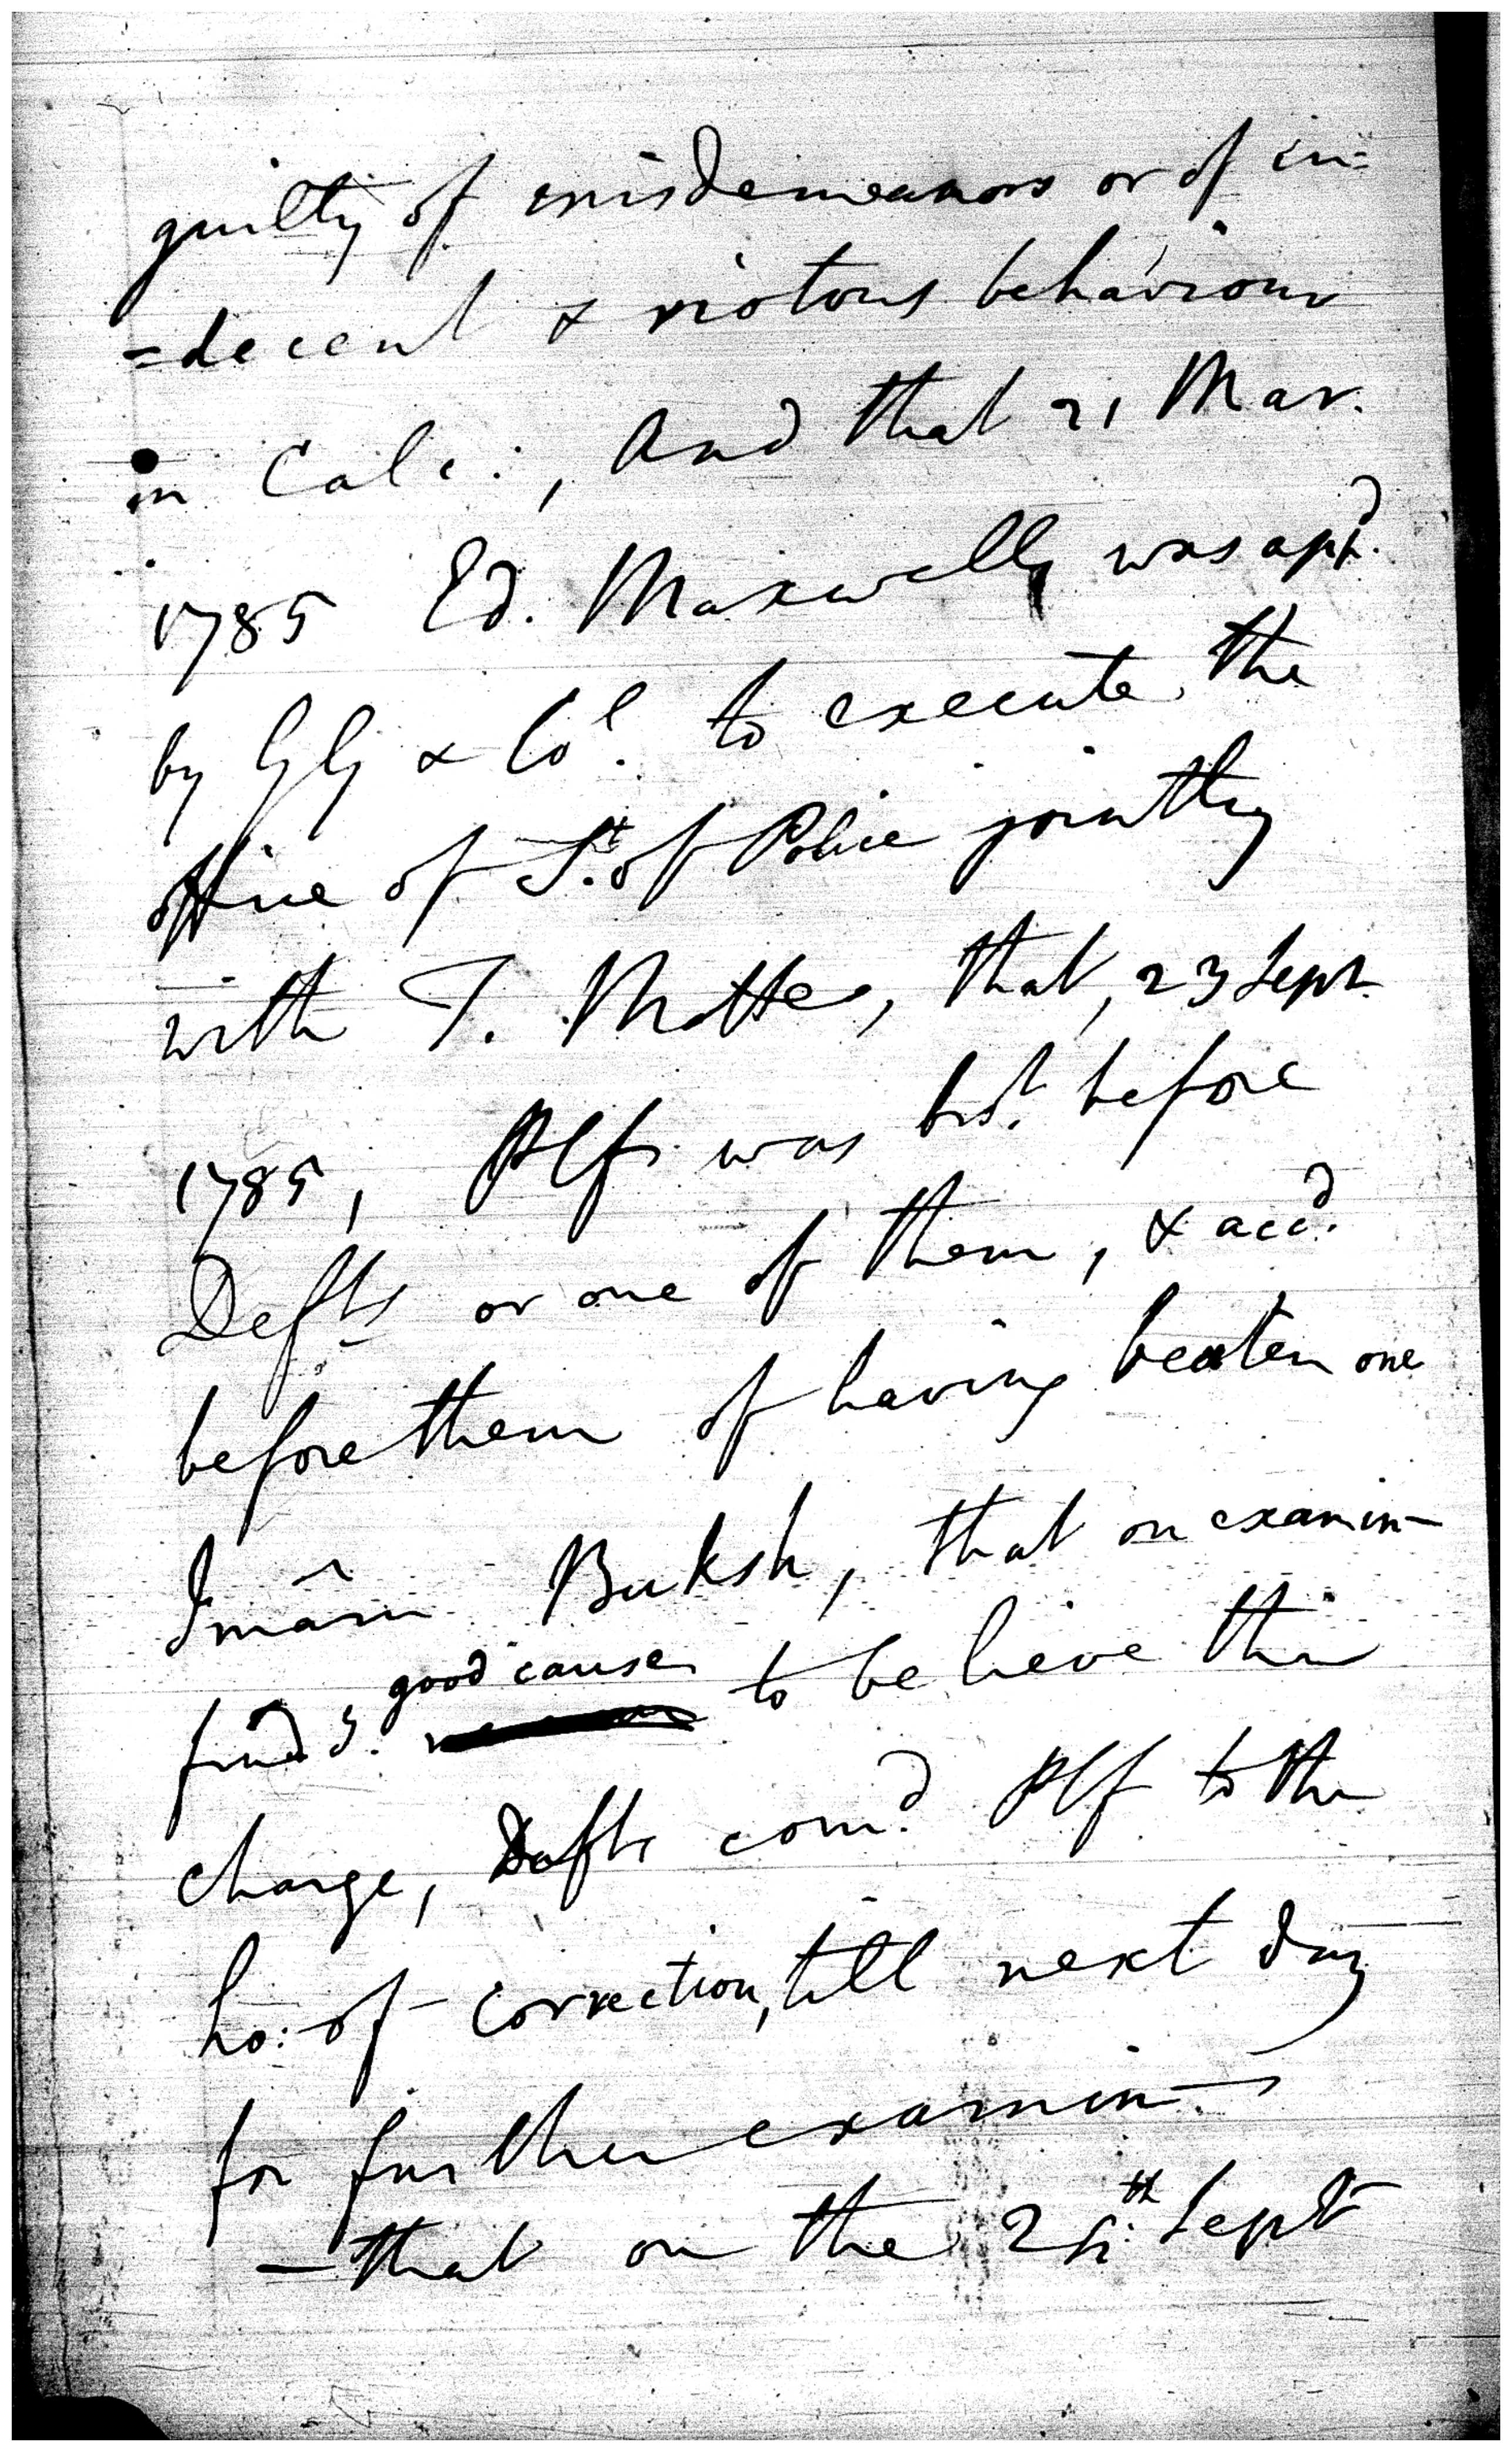 guilty of misdemeanors or of in=
=decent & riotous behaviour
in Calc:, And that 21 Mar.
1785 Ed. Maxwell, was app.d
by GG & Co.l to execute the
office of S.t of Police jointly
with T. Motte, that, 23 Sept.
1785, Plf. was bro.t before
Defts or one of them, & acc.d
before them of having beaten one
Imâm Buksh, that on examin-
good cause
to believe this
charge, Defts com.d Plf to the
ho: of correction, till next day
for further examin-
- that on the 24.th Sept